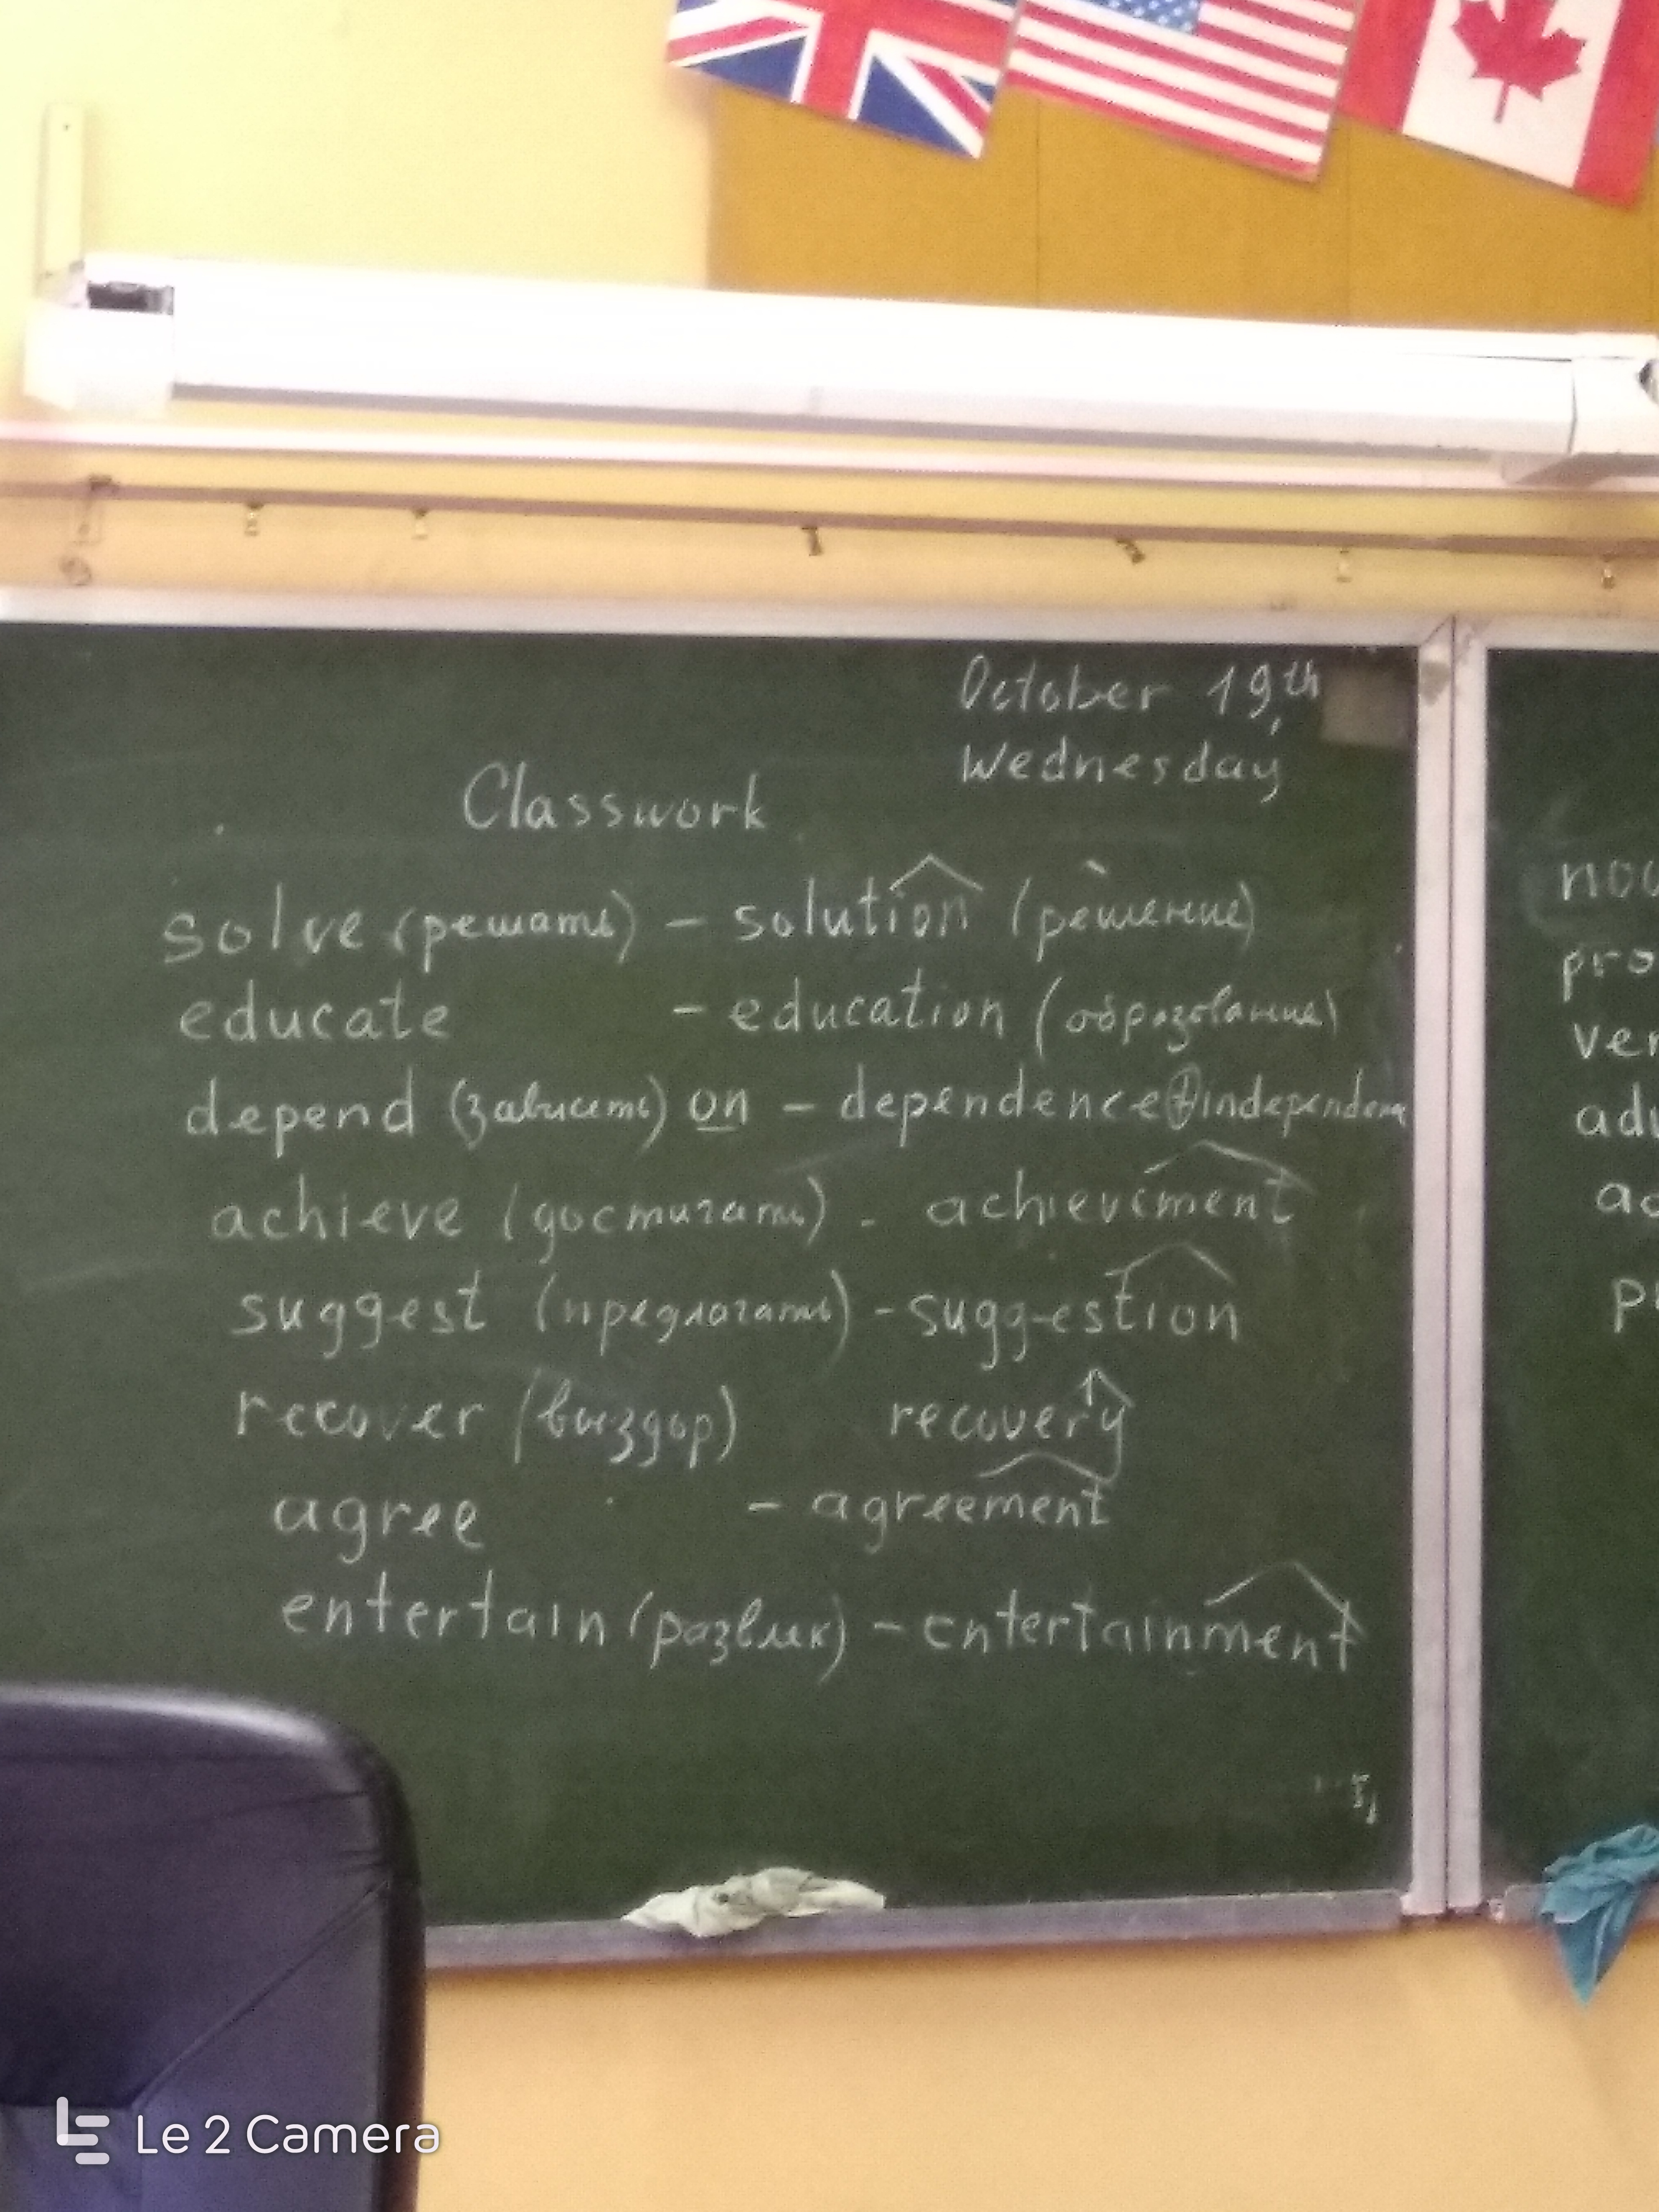 October 19th,
Wednesday
Classwork
solve (решать) - solution (решение)
educate - education (образование)
depend (зависеть) on - dependence
achieve (достигать) - achievement
suggest (предлагать) - suggestion
recover (выздор) recovery
agree - agreement
entertain (развлек) - entertainment
pro
ver
adv
Le 2 Camera